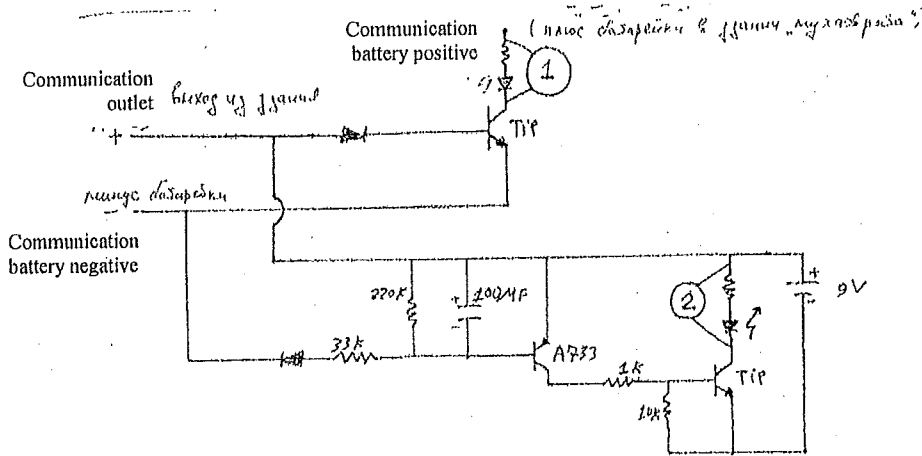 Communication
battery positive
(плюс батарейки в
1
Communication
outlet
выход из
+
Tip
минус батарейки
-
Communication
battery negative
220K
+
100MF
-
2
+
-
9V
33K
A733
1K
Tip
10K